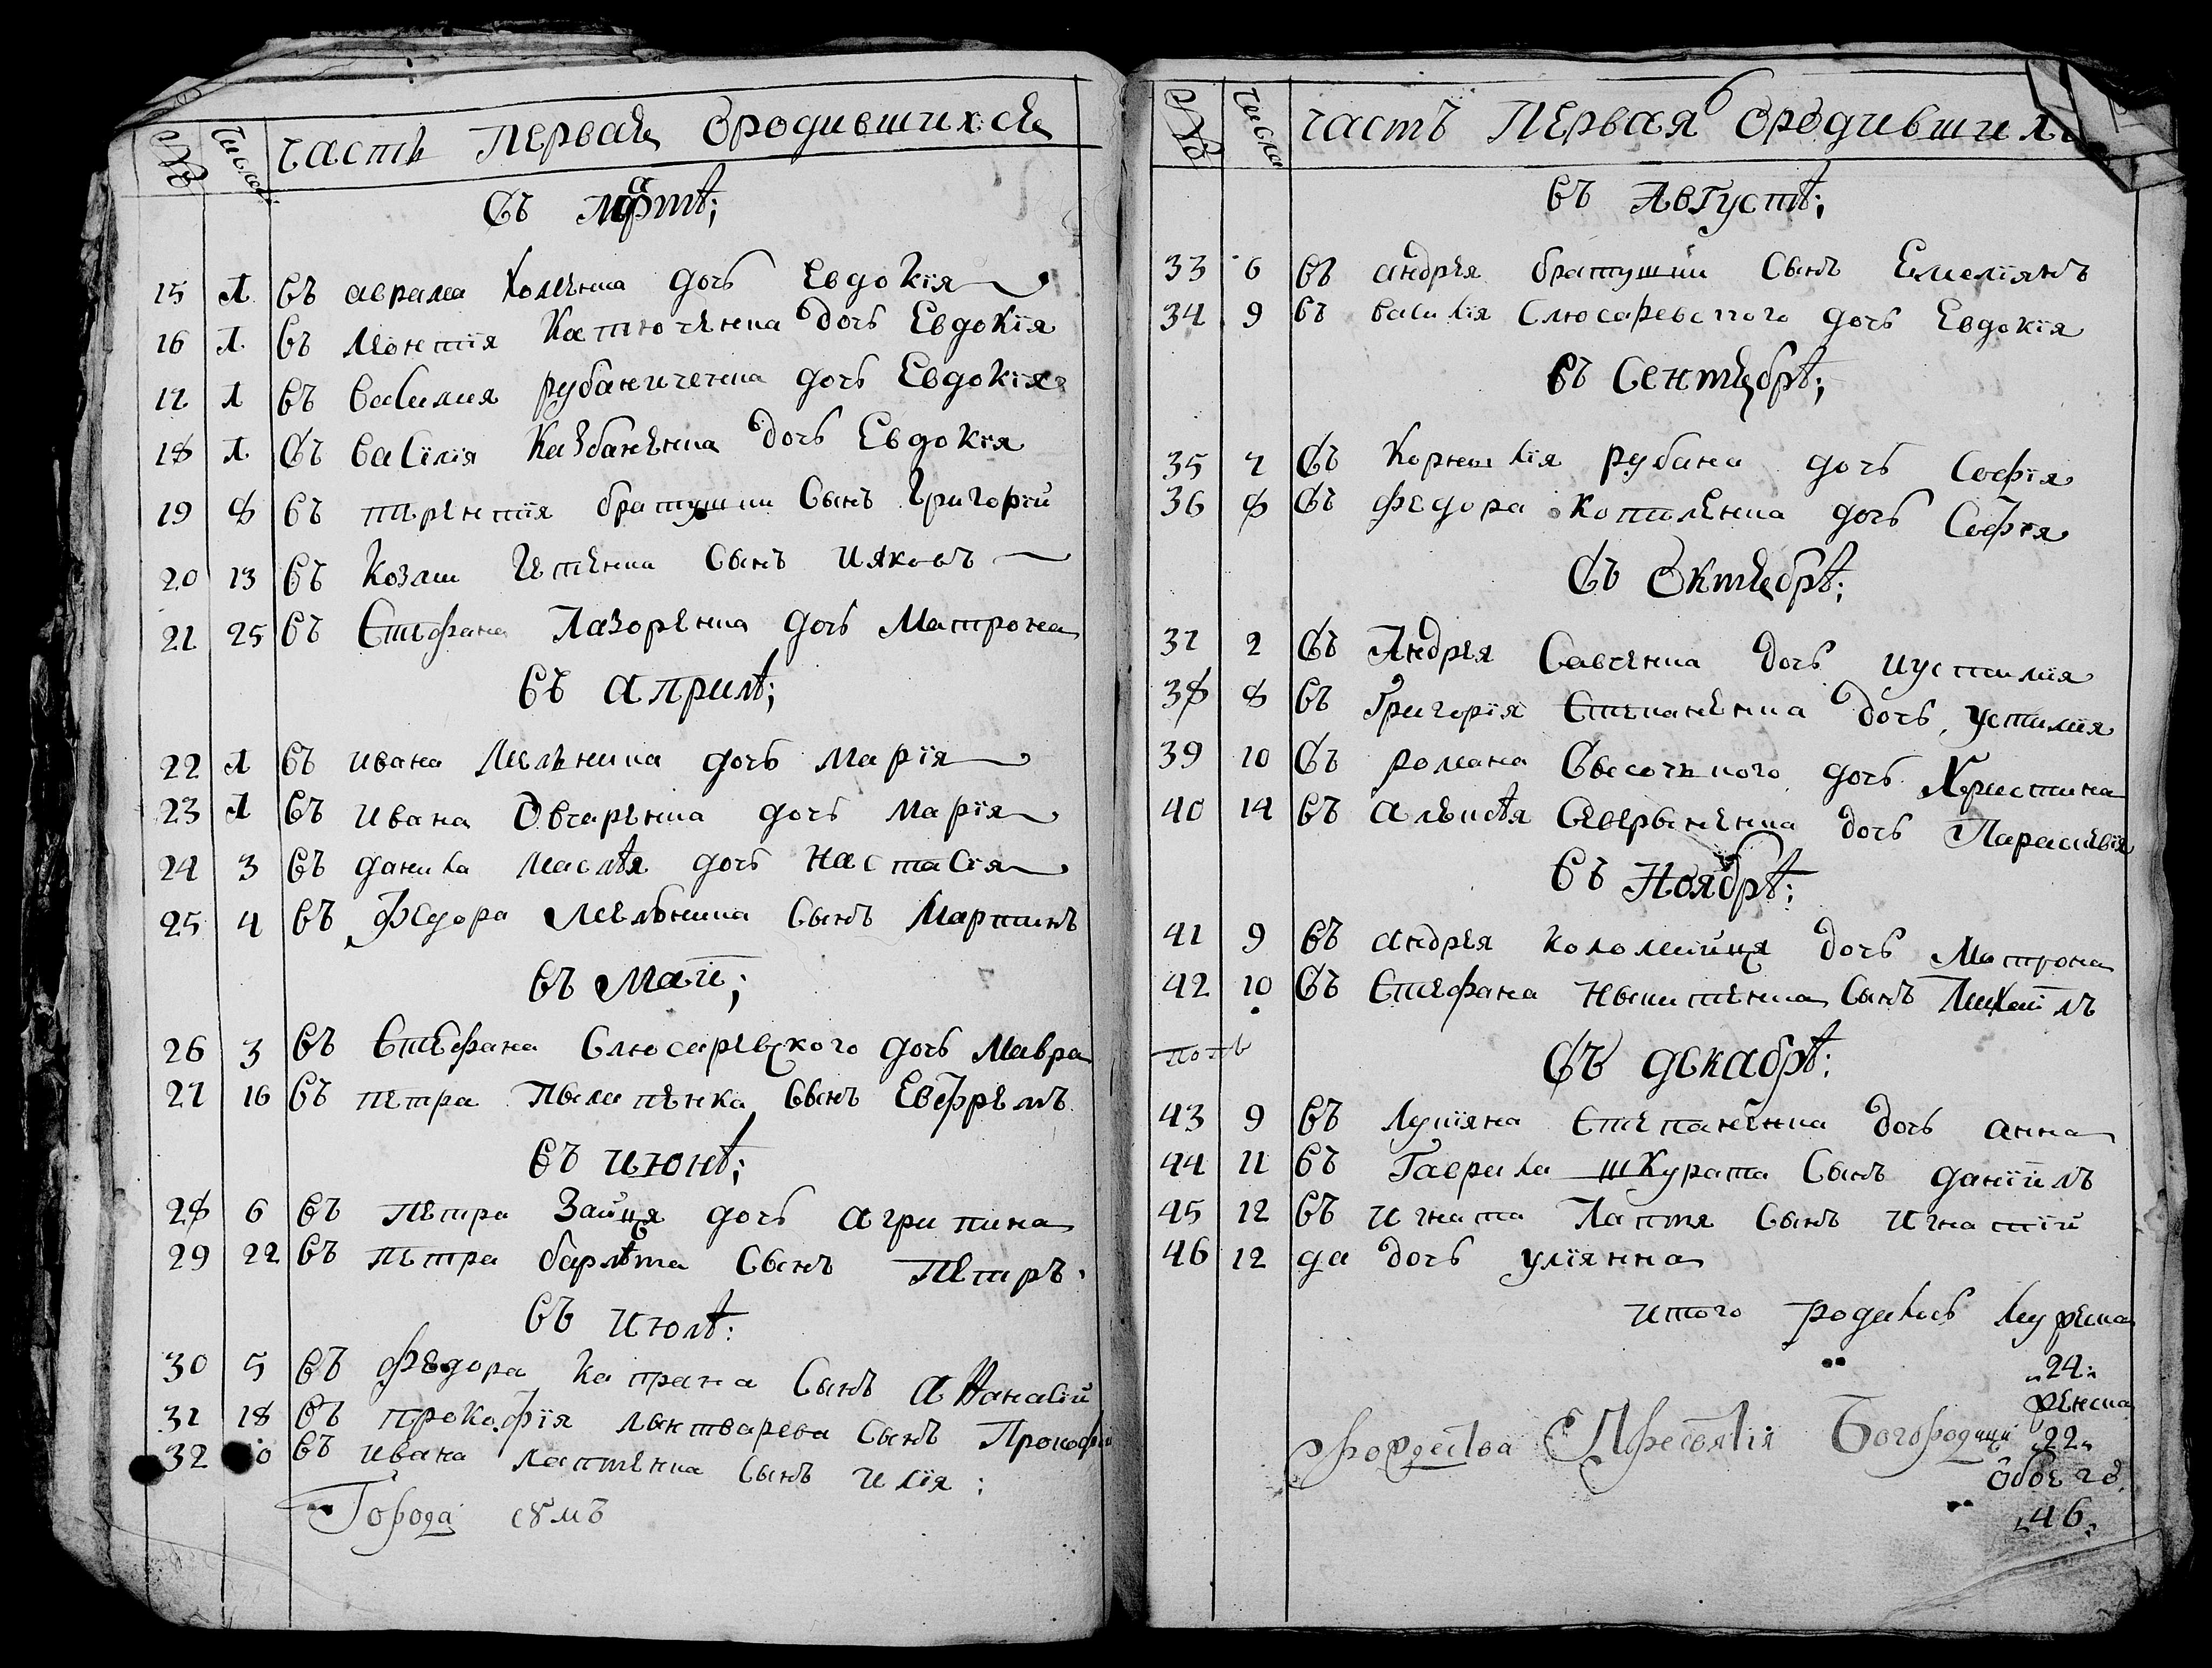 № Числа Часть Первая Ѡродившихся
Въ Мартѣ;
15 1 Въ аврама Хоменка дочь Евдокїя
16 1 Въ Леонтїя Катюченка дочь Евдокїя
17 1 Въ Василия рубаниченка дочь Евдокїя
18 1 Въ Василїя Казбаненка дочь Евдокїя
19 8 Въ терентїя братушки Сынъ Григорїй
20 13 Въ Козми Сынъ Ияковъ
21 25 Въ Стефана Лазоренка дочь Матрона
Въ априлѣ;
22 1 Въ ивана Мелника дочь Марїя
23 1 Въ ивана Овчаренка дочь Марїя
24 3 Въ данила Маслѣя дочь Настасїя
25 4 Въ Федора Мелника Сынъ Мартинъ
Въ Маїи;
26 3 Въ Стефана Слюсаревского дочь Мавра
27 16 Въ петра Пилипенка Сынъ Евфремъ
Въ июнѣ;
28 6 Въ Петра Зайця дочь агрипина
29 22 Въ петра барлѣта Сынъ Петръ
Въ июлѣ:
30 5 Въ Федора Катрана Сынъ аѲанасїй
31 18 Въ прокофїя линтварева Сынъ Прокофїй
32 Въ ивана лаптенка Сынъ илїя:
Города сꙋмъ
№ Числа Часть Первая Ѡродивши
Въ Августѣ;
33 6 Въ андрея братушки Сынъ Емелїянъ
34 9 Въ василїя Слюсаревского дочь Евдокїя
Въ Сентябрѣ;
35 7 Въ Корнилїя рубана дочь Софїя
36 8 Въ Федора Котиленка дочь Софїя
Въ Октябрѣ;
37 2 Въ Андрея Савченка дочь иустимїя
38 8 Въ Григорїя Степаненка дочь устимїя
39 10 Въ романа Свесочного дочь Христина
40 14 Въ алексѣя дочь Параскевїя
Въ Ноябрѣ;
41 9 Въ андрея коломийця дочь Матрона
42 10 Въ Стефана Никитенка Сынъ Михаилъ
Въ декабрѣ:
43 9 Въ Лукїяна Степаненка дочь анна
44 11 Въ Гаврила шкурата Сынъ данїилъ
45 12 Въ игната Лаптя Сынъ игнатїй
46 12 да дочь улїянна
итого родилось муреска
24
женска
Рождества Пресвятїя Богородици 22
Обоего
46